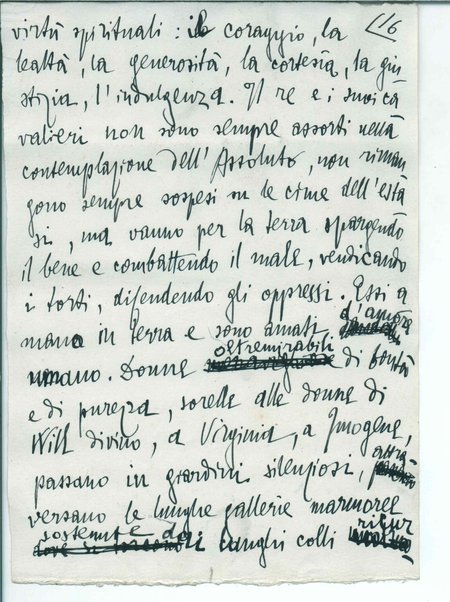 116
virtù spirituali : il coraggio, la
lealtà, la generosità, la cortesia, la giu
stizia, l'indulgenza. Il re e i suoi ca
valieri non sono sempre assorti nella
contemplazione dell'Assoluto, non riman
gono sempre sospesi su le cime dell'esta
si, ma vanno per la terra spargendo
il bene e combattendo il male, vendicando
i torti, difendendo gli oppressi. Essi a
mano in terra e sono amati, d'amore
umano. Donne oltremirabili di bontà
e di purezza, sorelle alle donne di
Will divino, a Virginia, a Imogene,
passano in giardini silenziosi, attra
versano le lunghe gallerie marmoree
sostenute da lunghi colli ricur